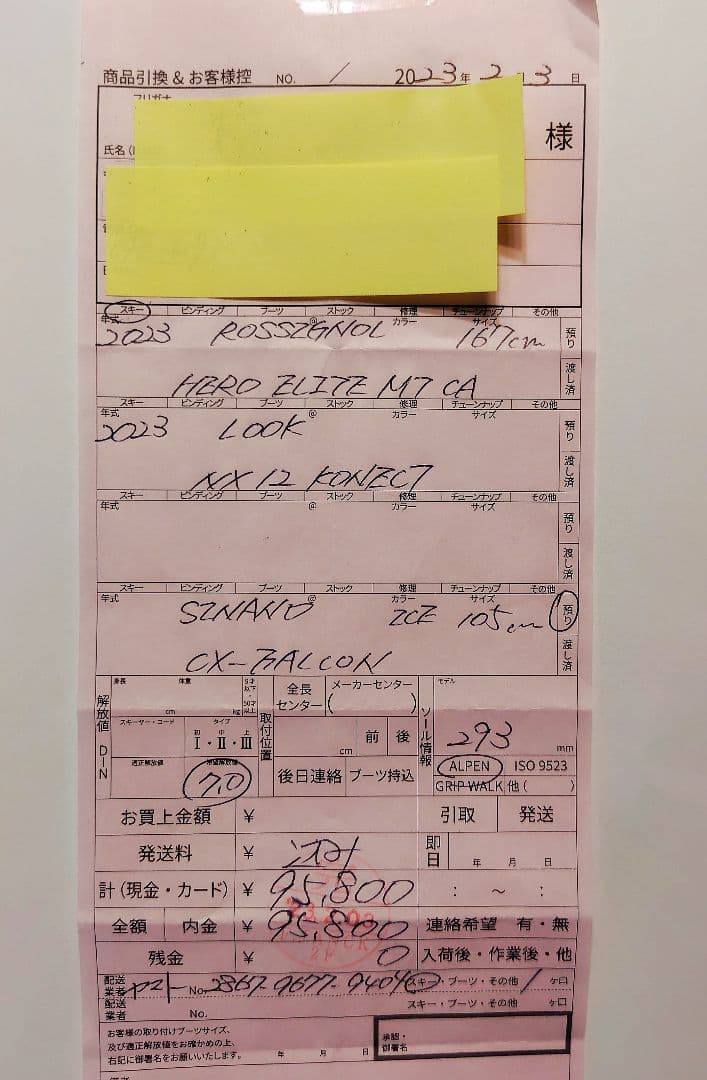 商品引換 & お客様控 NO. / 2023年 2月 3日
フリガナ
氏名 様
スキー ビンディング ブーツ ストック 修理 チューンナップ その他
年式 @ カラー サイズ 預り
2023 ROSSIGNOL 167cm
HERO ELITE MT CA 渡し済
スキー ビンディング ブーツ ストック 修理 チューンナップ その他
年式 @ カラー サイズ 預り
2023 LOOK
NX 12 KONECT 渡し済
スキー ビンディング ブーツ ストック 修理 チューンナップ その他
年式 @ カラー サイズ 預り
渡し済
スキー ビンディング ブーツ ストック 修理 チューンナップ その他
年式 @ カラー サイズ 預り
SINANO ICE 105cm
CX-FALCON 渡し済
解放値 DIN
身長 cm 体重 kg 9才以下・50才以上
スキーヤー・コード タイプ 初 中 上 Ⅰ・Ⅱ・Ⅲ
適正解放値 希望解放値 7.0
取付位置
全長センター メーカーセンター ( )
cm 前 後
後日連絡 ブーツ持込
ソール情報
モデル
293 mm
ALPEN ISO 9523
GRIP WALK 他 ( )
お買上金額 ¥ 引取 発送
発送料 ¥ 即日 年 月 日
計(現金・カード) ¥ 95,800 : ~ :
全額 内金 ¥ 95,800 連絡希望 有・無
残金 ¥ 0 入荷後・作業後・他
配送業者 ヤマト No. 2867-9677-9404 スキー・ブーツ・その他 1 ケ口
配送業者 No. スキー・ブーツ・その他 ケ口
お客様の取り付けブーツサイズ、
及び適正解放値をお確かめの上、
右記に御署名をお願いいたします。 年 月 日
承認・御署名